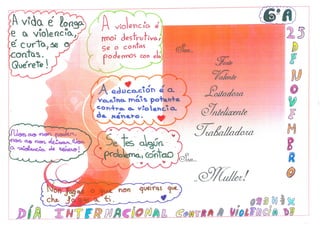 6ºA
A vida é longa
e a violencia,
é curta, se o
contas.
Quérete!
A violencia é
moi destrutiva,
se o contas
podemos con ela
A educación é a
vacina máis potente
contra a violencia
de xénero.
Se tes algún
problema, contao
Non
a violencia de xénero!
Non fagas o que non queiras que
che fagan a ti.
Son...
Forte
Valente
Loitadora
Intelixente
Traballadora
Son...
...Muller!
25
DE
NOVEMBRO
DÍA INTERNACIONAL CONTRA A VIOLENCIA DE
XÉNERO